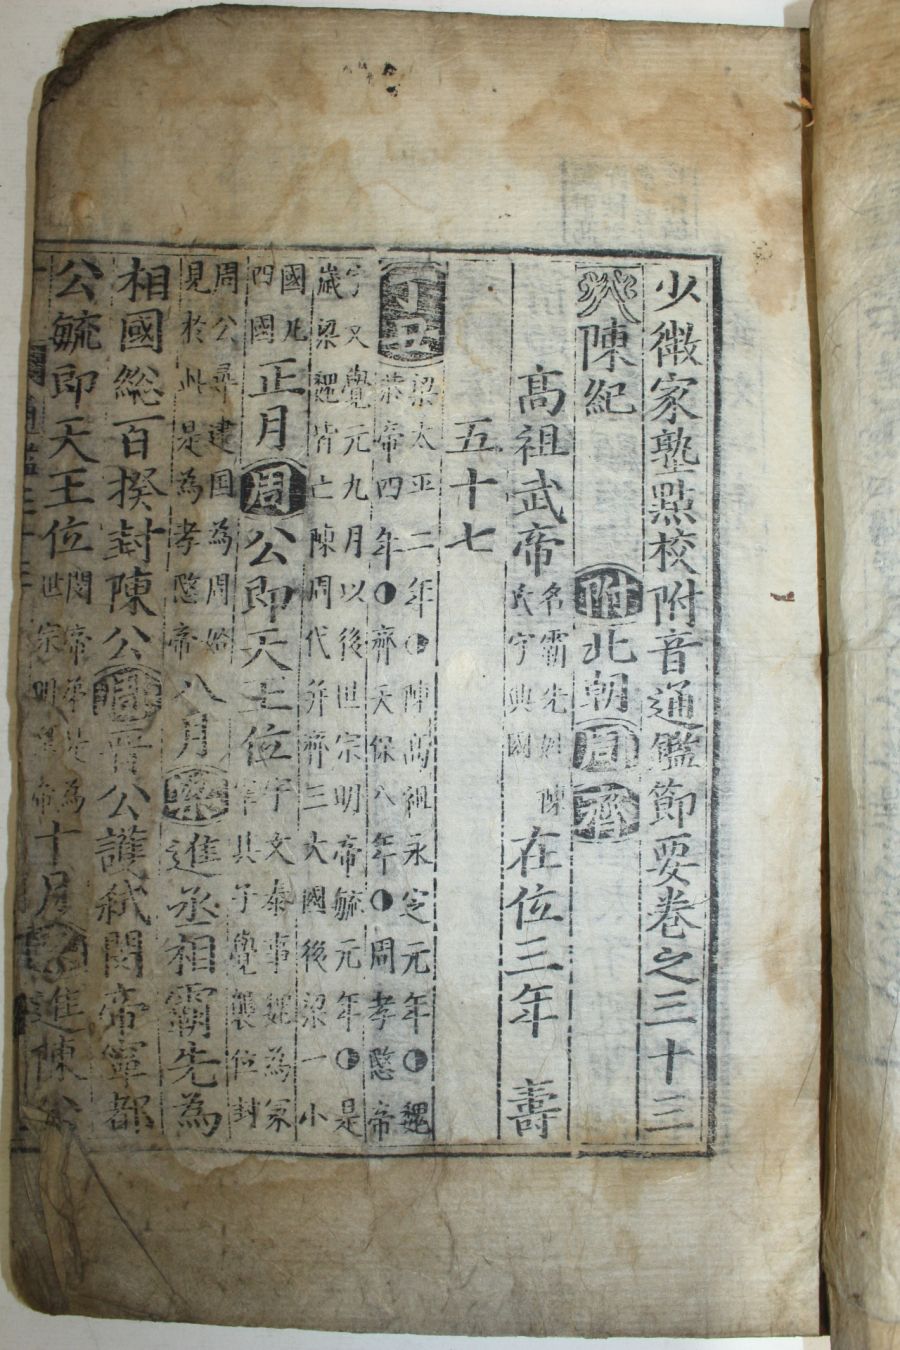 少微家塾點校附音通鑑節要卷之三十三
陳紀 附北朝周齊
高祖武帝 名霸先姓陳氏字興國 在位三年 壽
五十七
丁丑 梁太平二年陳高祖永定元年魏恭帝四年齊天保八年周孝愍帝
宇文覺元九月以後世宗明帝毓元年是歲梁魏皆亡陳周代并齊三大國後梁一小
國凡四國 正月周公即天王位 宇文泰事魏為冢宰其子覺襲位封
周公尋建国為周始見於此是為孝愍帝 八月梁進丞相霸先為
相國總百揆封陳公周晋公護弑閔帝寧都
公毓即天王位 世宗明皇帝 十月梁進陳公